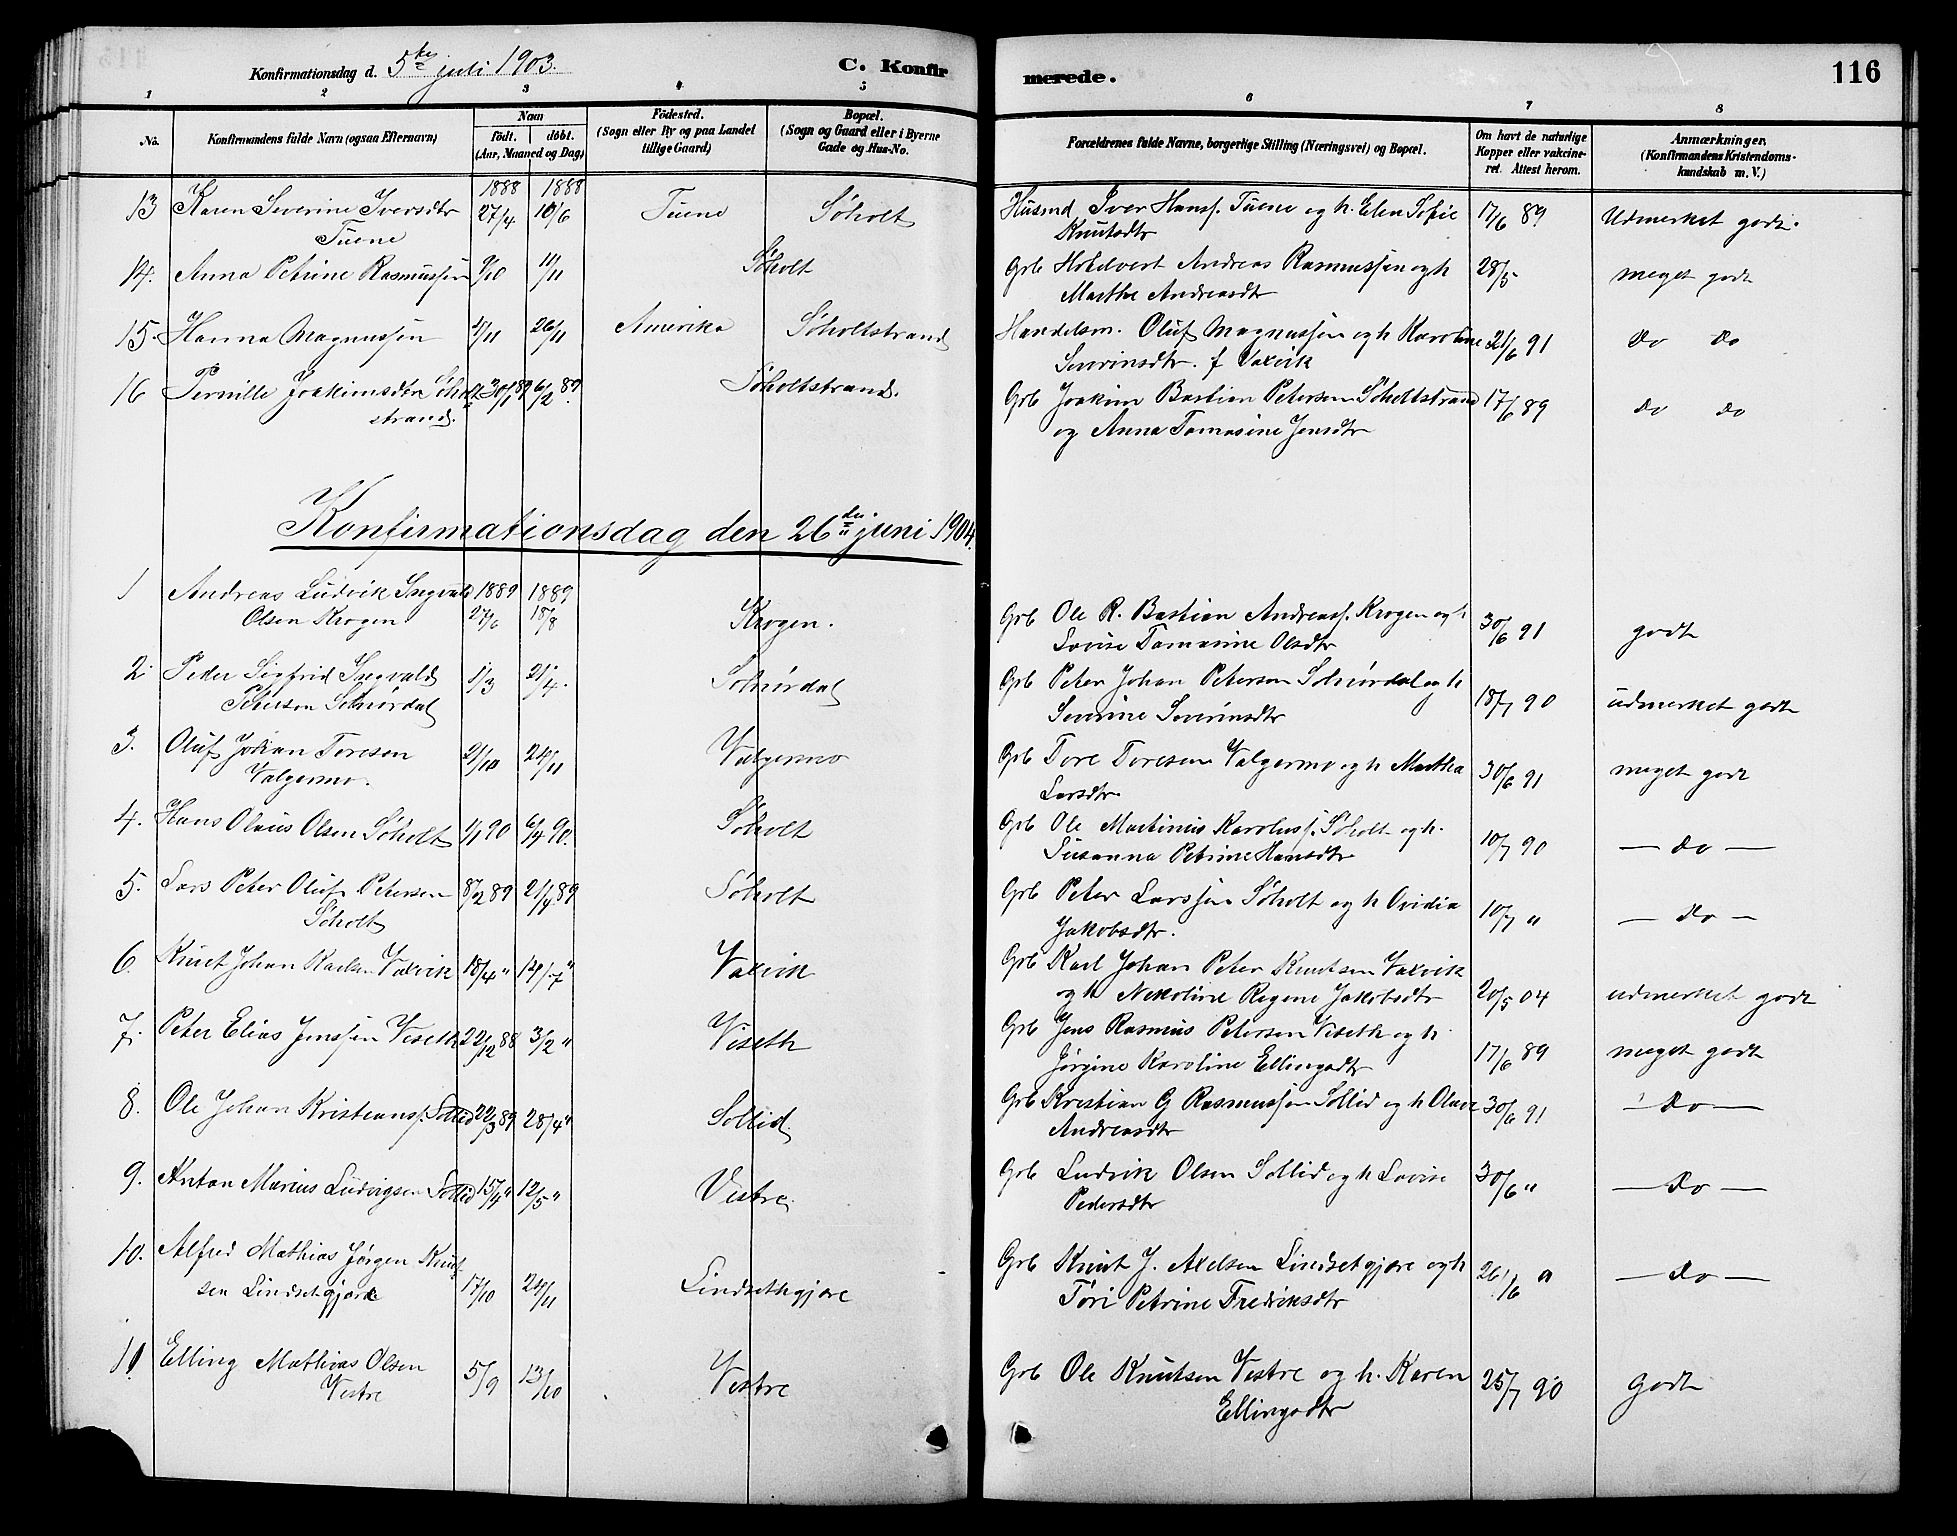 Konfirmationsdag d. 5te juli 1903. C. Konfirmerede. 116
1 2 3 4 5 6 7 8
No. Konfirmandens fulde Navn (ogsaa Efternavn) Naar født. døbt. (Aar, Maaned og Dag) Fødested. (Sogn eller By og paa Landet tillige Gaard) Bopæl. (Sogn og Gaard eller i Byerne Gade og Hus-No. Forældrenes fulde Navne, borgerlige Stilling (Næringsvei) og Bopæl. Om havt de naturlige Kopper eller vakcineret. Attest herom. Anmærkninger. (Konfirmandens Kristendomskundskab m. V.)
1888 1888
13 Karen Severine Iversdtr 27/4 10/6 Tuene Søholt Husmd Iver Hanss. Tuene og h. Elen Sofie 17/6 89 Udmerket godt.
Tuene Knutsdtr
14. Anna Petrine Rasmussen 9/10 11/11 Søholt Grb Hotelvert Andreas Rasmussen og h 28/5 meget godt
Marthe Andreasdtr
15. Hanna Magnussen 4/11 26/11 Amerika Søholtstrand Handelsm. Oluf Magnussen og h Karoline 21/6 91 do do
Severinsdtr. f Vaxvik
16 Pernille Joakimsdtr Søholt 30/1 89 6/2 89. Søholtstrand. Grb Joakim Bastian Petersen Søholtstrand 17/6 89 do do
strand. og Anna Tomasine Jensdtr
Konfirmationsdag den 26de juni 1904.
1 Andreas Ludvik Ingvald 1889 1889
Olsen Krogen 27/6 18/8 Krogen. Grb Ole R. Bastian Andreass. Krogen og h 30/6 91 godt
Lovise Tomasine Olsdtr
2. Peder Sigfrid Ingvald 1/3 21/4. Grb Peter Johan Petersen og h 18/7 90 udmerket godt
Petersen Severine Severinsdtr
3. Oluf Johan Toresen 2/10 24/11 Valgermo Grb Tore Toresen Valgermo og h Martha 30/6 91 meget godt
Valgermo. Larsdtr.
4. Hans Olaus Olsen Søholt 1/1 90 6/4 90. Søholt Grb Ole Martinius Karoluss. Søholt og h. 10/7 90 — do —
Susanna Petrine Hansdtr
5. Lars Peter Oluf Petersen 8/2 89 21/4 89 Søholt Grb Peter Larssen Søholt og h Ovidia 10/7 " — do —
Søholt Jakobsdtr.
6. Knut Johan Karlsen Vaxvik 18/4 " 14/7 " Vaxvik Grb Karl Johan Peter Knutsen Vaxvik
og h Nekoline Regine Jakobsdtr 20/5 04 udmerket godt
7. Peter Elias Jenssen Viseth 22/12 88 3/2 " Viseth Grb Jens Rasmus Petersen Viseth og h 17/6 89 meget godt
Jørgine Karoline Ellingsdtr
8. Ole Johan Kristians. Sollid 22/3 89 28/4 " Sollid. Grb Kristian G Rasmussen Sollid og h Olave 30/6 91 — do —
Andreasdtr
9. Anton Marius Ludvigsen Sollid 15/4 " 12/5 " Vestre. Grb Ludvik Olsen Sollid og h Lovise 30/6 " — do —
Pedersdtr
10. Alfred Mathias Jørgen Knut-
sen Lindsetgjære 17/10 24/11 Lindsethgjære Grb Knut J. Axelsen Lindsetgjære og h 26/6 " — do —
Tøri Petrine Fredriksdtr
11 Elling Mathias Olsen 5/9 13/10 Vestre Grb Ole Knutsen Vestre og h. Karen 25/7 90 Godt
Vestre Ellingsdtr